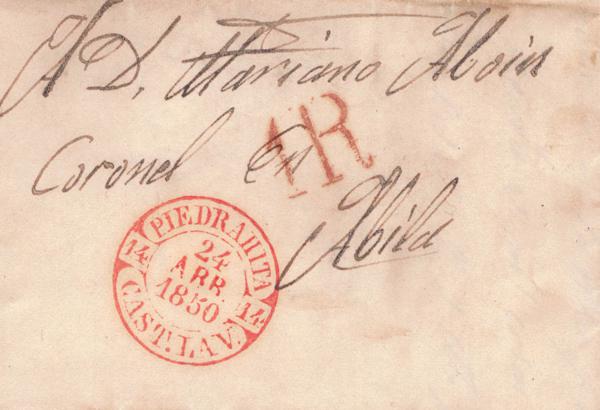 A D. Mariano Aboin
1R
Coronel En
Abila
PIEDRAHITA
14
24
ABR.
1850
14
CAST. LA V.